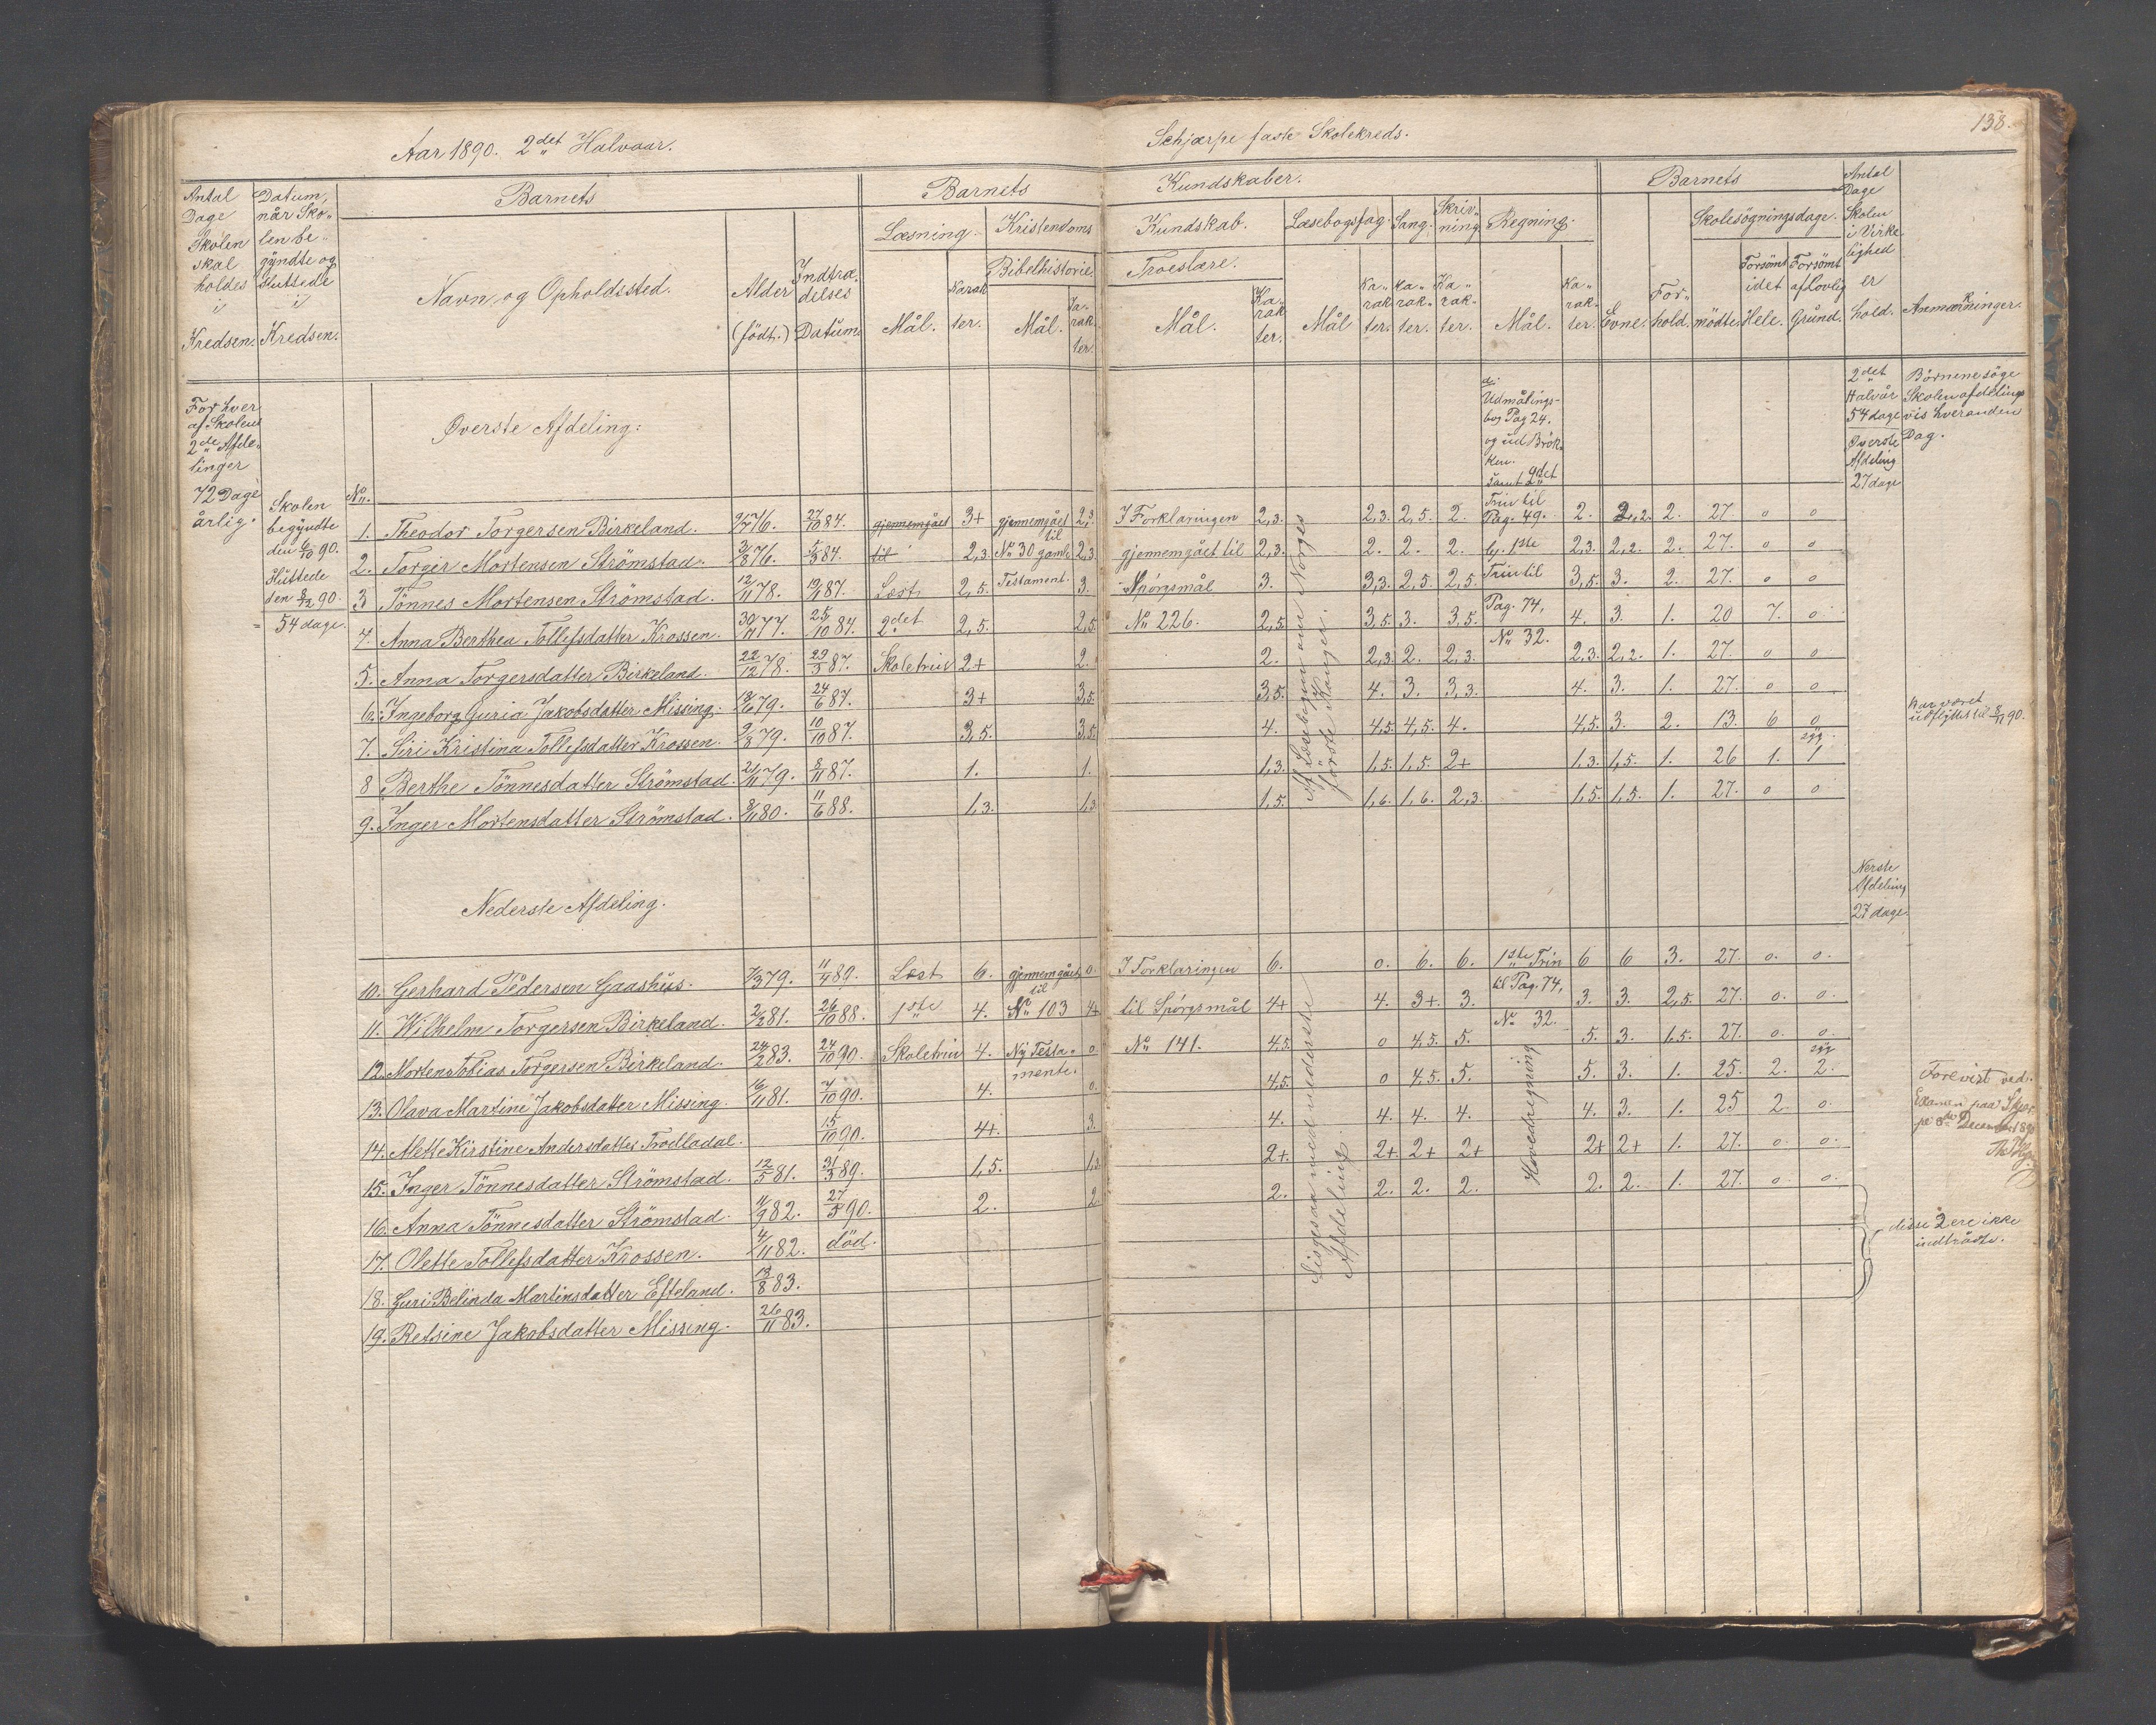 Aar 1890. 2det Halvaar.
Schjærpe faste Skolekreds.
138.
Antal Dage Skolen skal holdes i Kredsen.
Datum, når Skolen begyndte og sluttede i Kredsen.
Barnets
Navn og Opholdssted.
Alder (födt.)
Indtrædelses Datum.
Barnets
Kundskaber.
Læsning.
Mål.
Karakter.
Kristendoms Kundskab.
Bibelhistorie.
Mål.
Karakter.
Troeslære.
Mål.
Karakter.
Læsebogsfag.
Mål
Karakter.
Sang.
Karakter.
Skrivning
Karakter.
Regning.
Mål.
Karakter.
Barnets
Evne.
Forhold.
Skolesögningsdage.
mödte
Forsömt i det Hele.
Forsömt af lovlig Grund.
Antal Dage Skolen i Virkelighed er hold.
Anmærkninger.
For hver
af Skolens
2de Afde-
linger
72 Dage
årlig.
Skolen
begyndte
den 6/10 90.
Sluttede
den 8/12 90.
= 54 dage.
Øverste Afdeling:
No.
1. Theodor Torgersen Birkeland. 9/7 76. 27/10 84. gjennemgået 3+ gjennemgået til 2,3 I Forklaringen 2,3. 2,3. 2,5. 2. 2. 2,2. 2. 27. 0 0
2. Torger Mortensen Strömstad. 3/8 76. 5/3 84. til 2,3. No 30 gamle 2,3. gjennemgået til 2,3. 2. 2. 2. 2,3. 2,2. 2. 27. 0 0
3 Tönnes Mortensen Strömstad. 12/11 78. 19/1 87. Læst 2,5. Testament. 3. Spörgsmål 3. 3,3. 2,5. 2,5. 3,5. 3. 2. 27. 0 0
4. Anna Berthea Tollefsdatter Krossen. 30/11 77. 25/10 84. 2det 2,5. 2,5. No 226. 2,5. 3,5. 3. 3,5. 4. 3. 1. 20 7. 0
5. Anna Torgersdatter Birkeland. 22/12 78. 23/3 87. Skoletrin 2+ 2. 2. 2,3. 2. 2,3. 2,3. 2,2. 1. 27. 0 0
6. Ingeborg Guria Jakobsdatter Missing. 18/6 79. 24/6 87. 3+ 3,5. 3,5. 4. 3. 3,3. 4. 3. 1. 27. 0 0
7. Siri Kristina Tollefsdatter Krossen. 2/8 79. 10/10 87. 3,5. 3,5. 4. 4,5. 4,5. 4. 4,5. 3. 2. 13. 6 0
8 Berthe Tönnesdatter Strömstad. 21/11 79. 8/11 87. 1. 1. 1,3. 1,5. 1,5. 2+ 1,3. 1,5. 1. 26 1. 1
9. Inger Mortensdatter Strömstad. 8/11 80. 11/6 88. 1,3. 1,3 1,5. 1,6. 1,6. 2,3. 1,5. 1,5. 1. 27. 0 0
Af Læsebogen om Norges
förste Konger.
Udmålings-
bog Pag 24.
og ud Brök-
ken.
samt 2det
Trin til
Pag. 49.
1ste
Trin til
Pag. 74,
No 32.
2det
Halvår
54 dage
Øverste
Afdeling
27 dage
Börnene söge
Skolen afdelings
vis hveranden
Dag.
Har været
udflyttet til 8/11 90.
Nederste Afdeling.
Nerste
Afdeling
27 dage.
10. Gerhard Pedersen Gaashus. 7/3 79. 11/4 89. Læst 6. gjennemgået til 0. I Forklaringen 6. 0. 6. 6. 1ste Trin 6 6 3. 27. 0. 0.
11. Wilhelm Torgersen Birkeland. 2/2 81. 26/10 88. 1ste 4. No 103 4+ til Spörgsmål 4+ 4. 3+. 3. til Pag. 74, 3. 3. 2,5. 27. 0. 0.
12. Morten Tobias Torgersen Birkeland. 24/2 83. 24/10 90. Skoletrin 4. Ny Testa- 0. No 141. 4,5. 0 4,5. 5. No 32. 5. 3. 1,5. 27. 0. 0.
mente.
13. Olava Martine Jakobsdatter Missing. 16/11 81. 7/10 90. 4. 0. 4,5. 0 4,5. 5. 5. 3. 1. 25. 2. 2.
14. Mette Kirstine Andersdatter Trolladal. 15/10 90. 4+. 3. 4. 4. 4. 4. 4. 3. 1. 25 2. 0.
15. Inger Tönnesdatter Strömstad. 12/5 81. 31/3 89. 1,5. 1,3 2+. 2+. 2+ 2+ 2+ 2+ 1. 27. 0. 0.
16. Anna Tönnesdatter Strömstad. 4/9 82. 27/5 90. 2. 2. 2. 2. 2. 2. 2. 2. 1. 27. 0. 0.
17. Olette Tollefsdatter Krossen. 4/11 82. död.
18. Guri Belinda Martinsdatter Efteland. 13/8 83.
19. Betsine Jakobsdatter Missing. 26/11 83.
Ligesaa med nederste
Afdeling.
Hovedregning
Forevist ved
Examen paa Skjær-
pe 8de December 1890
disse 2 ere ikke
indtrådte.